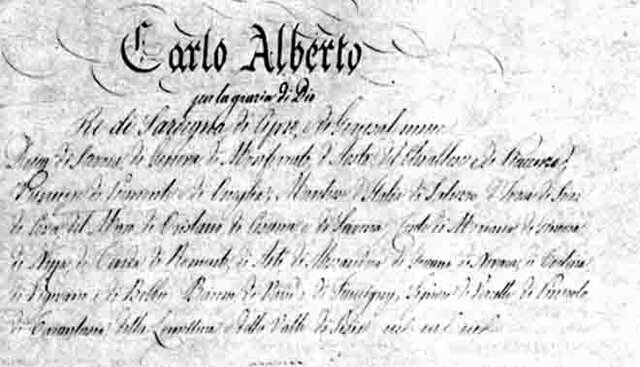 Carlo Alberto
per la grazia di Dio
Re di Sardegna di Cipro e di Gerusalemme
Duca di Savoia di Genova di Monferrato d'Aosta del Chiablese e di Piacenza,
Principe di Piemonte e di Oneglia, Marchese d'Italia di Saluzzo d'Ivrea di Susa
di Ceva del Maro di Oristano di Cesana e di Savona Conte di Moriana di Ginevra
di Nizza di Tenda di Romonte, di Asti di Alessandria di Goceano di Novara, di Tortona
di Vigevano e di Bobbio Barone di Vaud e di Faucigny, Signore di Vercelli di Pinerolo
di Tarantasia della Lomellina e della Valle di Sesia